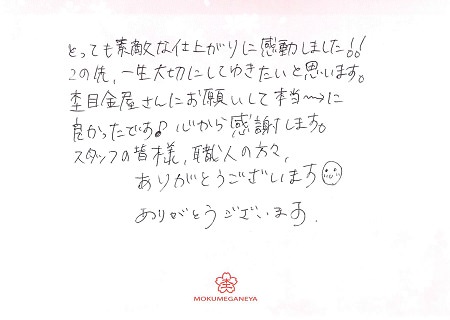 とっても素敵な仕上がりに感動しました!!
この先、一生大切にしてゆきたいと思います。
杢目金屋さんにお願いして本当〜に
良かったです♪心から感謝します。
スタッフの皆様、職人の方々、
ありがとうございます
ありがとうございます.
杢
MOKUMEGANEYA